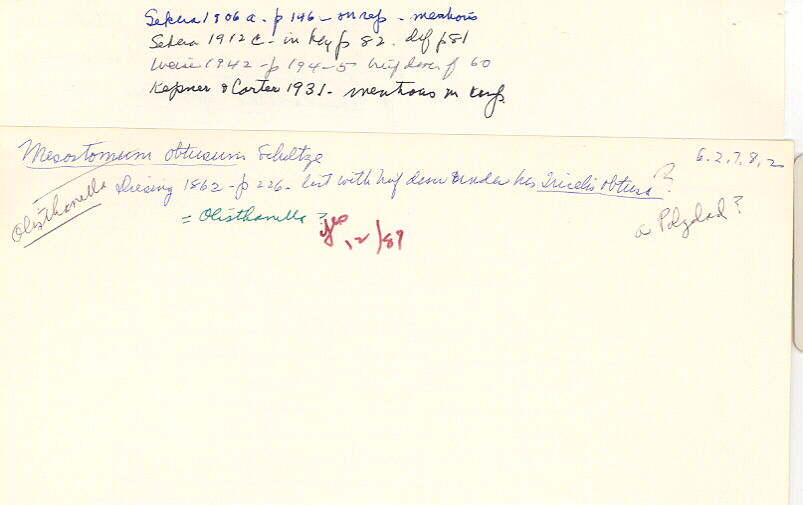 Sekera 1906 a - p 146 - on rep - mentions
Sekera 1912 c - in key p 82. dif p 81
Weise 1942 - p 194-5 brief desc f 60
Kepner & Carter 1931 - mentions in
Mesostomum obtusum Schultze
6.2.7.8.2
Olisthanella Diesing 1862 - p 226 - list with brief desc under his Tricelis obtusa ?
= Olisthanella ? yes 12/89
a Polyclad ?